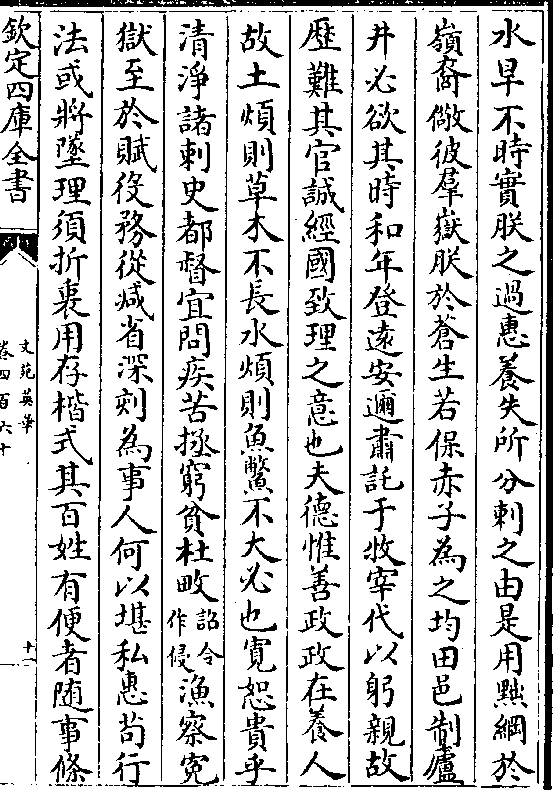 水旱不時實朕之過惠養失所分刺之由是用㸃綱於
嶺裔儆彼羣嶽朕於蒼生若保赤子為之均田邑制廬
井必欲其時和年登逺安邇肅託于牧宰代以躬親故
歴難其官誠經國致理之意也夫德惟善政政在養人
故土煩則草木不長水煩則魚鱉不大必也寛恕貴乎
清淨諸刺史都督宜問疾苦拯窮貧杜畋詔令作侵漁察寃
獄至於賦役務從减省深刻為事人何以堪私惠苟行
法或將墜理須折衷用存楷式其百姓有便者随事條
欽定四庫全書
文苑英華
卷四百六十
十一